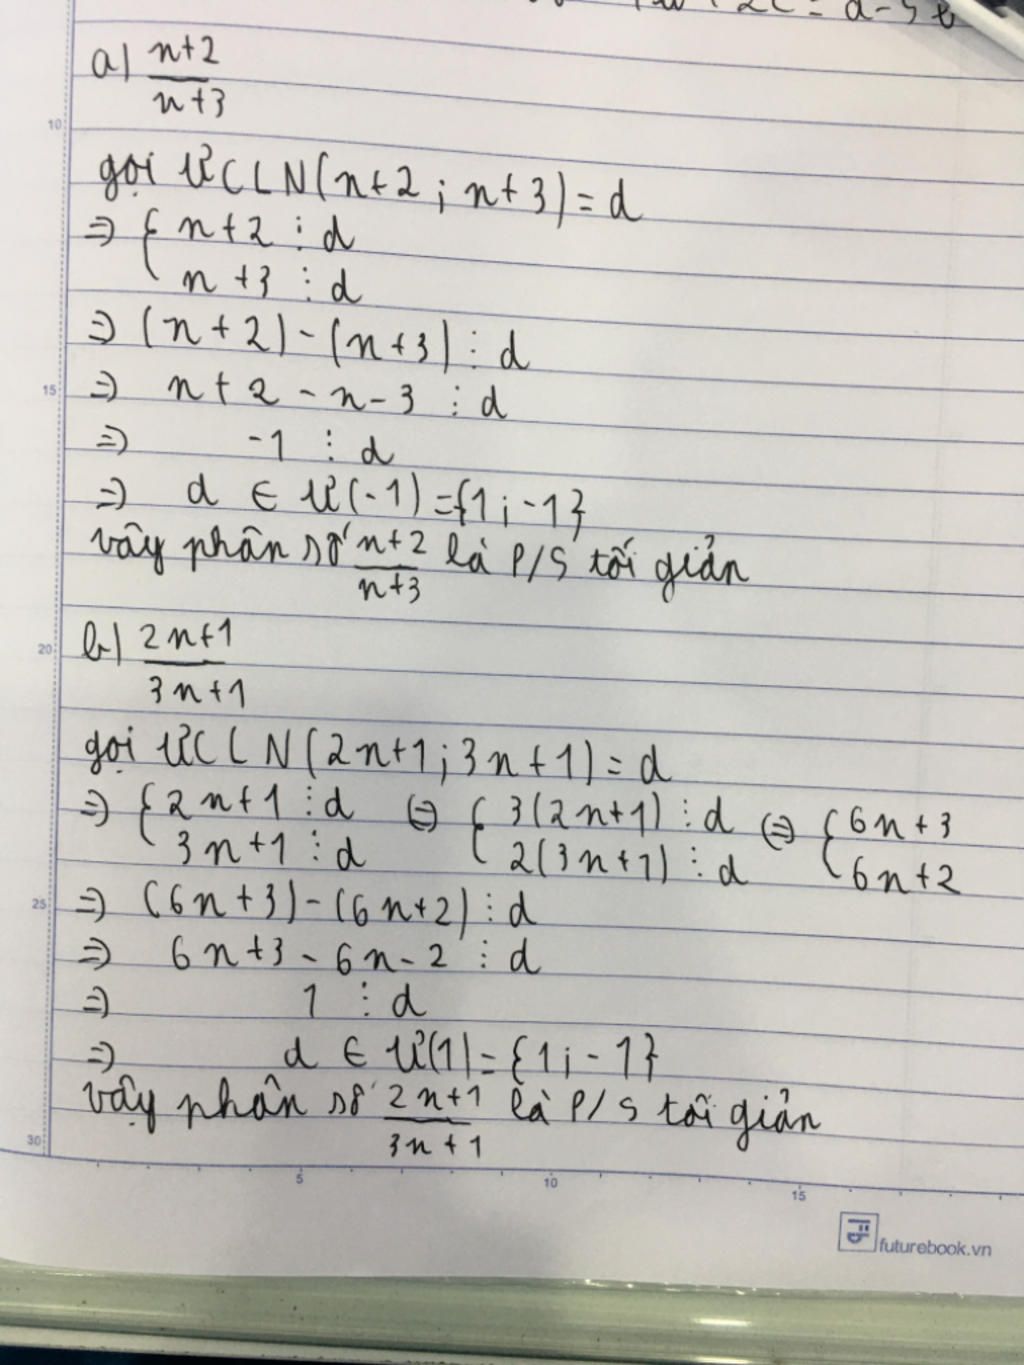 a) n+2/n+3
10
gọi ƯCLN(n+2; n+3) = d
=> { n+2 ⋮ d
n+3 ⋮ d
=> (n+2)-(n+3) ⋮ d
15
=> n+2-n-3 ⋮ d
=> -1 ⋮ d
=> d ∈ Ư(-1)={1;-1}
vây phân số n+2/n+3 là P/S tối giản
20
b) 2n+1/3n+1
gọi ƯCLN(2n+1; 3n+1) = d
=> { 2n+1 ⋮ d <=> { 3(2n+1) ⋮ d <=> { 6n+3
3n+1 ⋮ d 2(3n+1) ⋮ d 6n+2
25
=> (6n+3)-(6n+2) ⋮ d
=> 6n+3-6n-2 ⋮ d
=> 1 ⋮ d
=> d ∈ Ư(1)={1;-1}
vậy phân số 2n+1/3n+1 là P/S tối giản
30
5 10 15
futurebook.vn